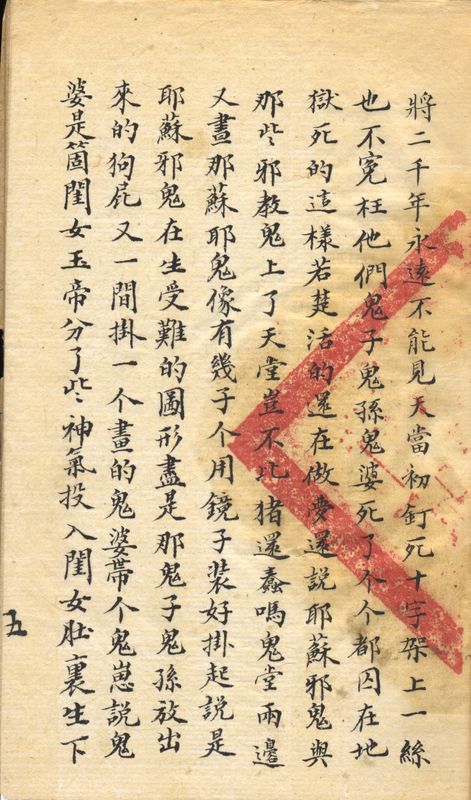 將二千年永遠不能見天當初釘死十字架上一絲
也不寃枉他們鬼子鬼孫鬼婆死了个个都囚在地
獄死的這樣若楚活的還在做夢還說耶蘇邪鬼與
那些邪教鬼上了天堂豈不比猪還蠢嗎鬼堂兩邊
又畫那蘇耶鬼像有幾子个用鏡子装好掛起說是
耶蘇邪鬼在生受難的圖形盡是那鬼子鬼孫放出
來的狗屁又一間掛一个畫的鬼婆帶个鬼崽說鬼
婆是箇閨女玉帝分了些神氣投入閨女肚裏生下
五